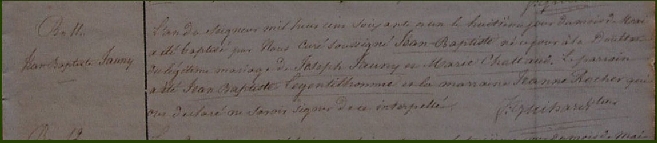 B. 11.
Jean Baptiste Jaunny
L'an du Seigneur mil huit cent soixante et un le huitième jour du mois de Mai
a été baptisé par Nous Curé soussigné Jean Baptiste né ce jour à la
du légitime mariage de Joseph Jaunny et Marie Chattaud. Le parrain
a été Jean Baptiste Legentilhomme et la marraine Jeanne Rocher qui
ont déclaré ne savoir signer de ce interpellés.
B. 12
mois de Mai